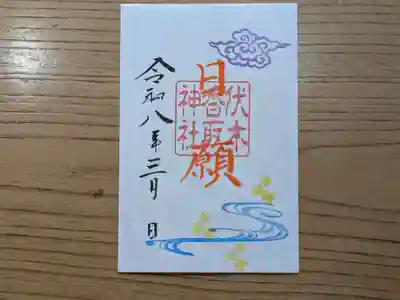 日願
伏木
香取
神社
令和八年三月 日